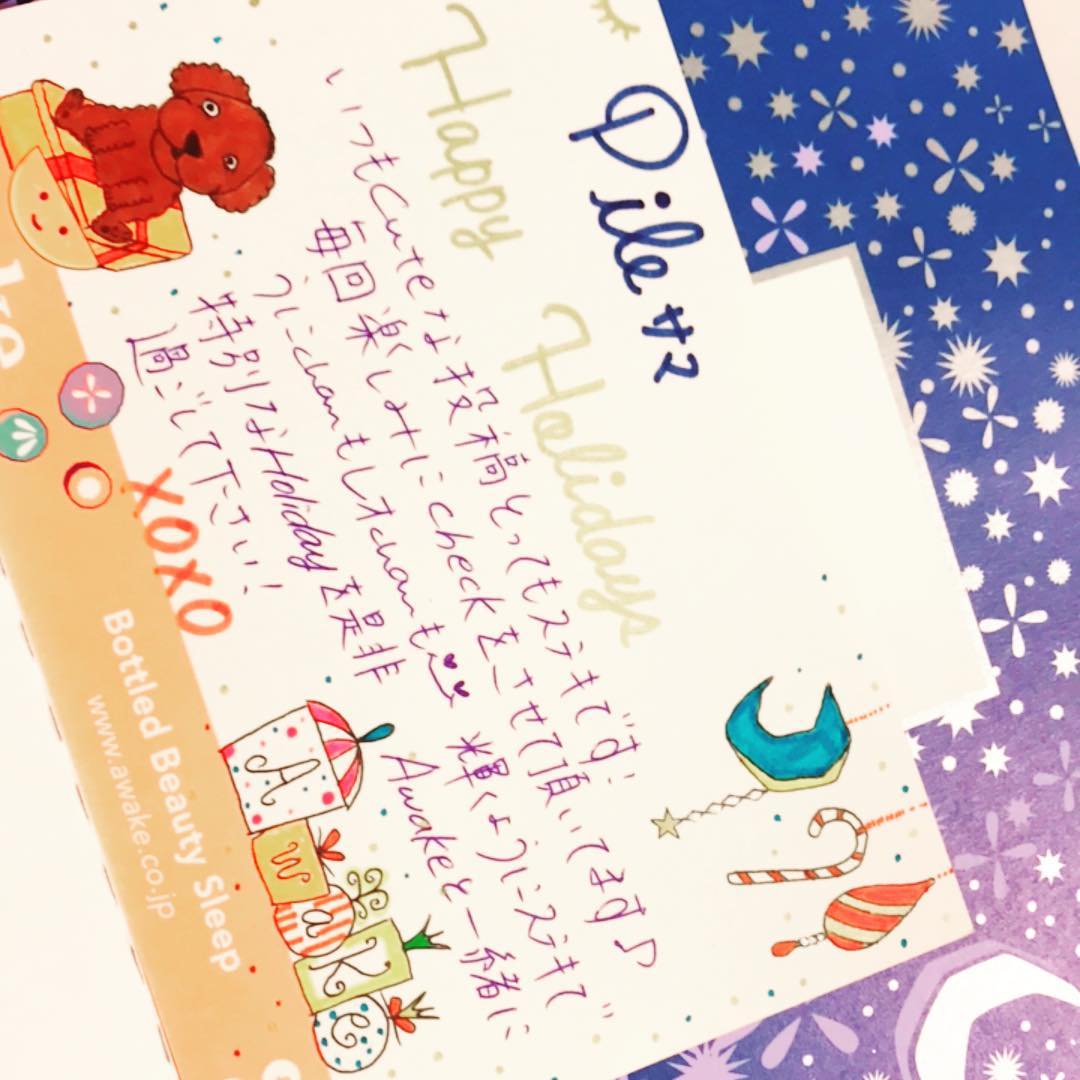 Pile サマ
Happy Holidays
いつもcuteな投稿とってもステキです!
毎回楽しみにcheckをさせて頂いてます♪
うにchanもレオchanも♥♥ 輝くようにステキで
特別なHolidayを是非 Awakeと一緒に
過ごして下さい!
XOXO
AwaKe
Bottled Beauty Sleep
www.awake.co.jp